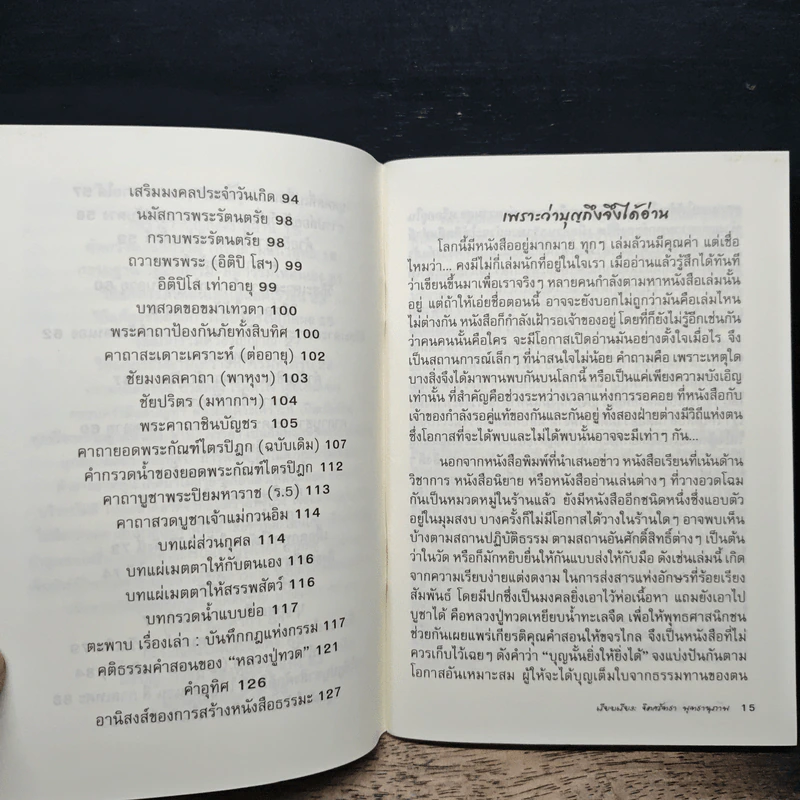 เสริมมงคลประจำวันเกิด 94
นมัสการพระรัตนตรัย 98
กราบพระรัตนตรัย 98
ถวายพรพระ (อิติปิ โสฯ) 99
อิติปิโส เท่าอายุ 99
บทสวดขอขมาเทวดา 100
พระคาถาป้องกันภัยทั้งสิบทิศ 100
คาถาสะเดาะเคราะห์ (ต่ออายุ) 102
ชัยมงคลคาถา (พาหุงฯ) 103
ชัยปริตร (มหากาฯ) 104
พระคาถาชินบัญชร 105
คาถายอดพระกัณฑ์ไตรปิฎก (ฉบับเดิม) 107
คำกรวดน้ำของยอดพระกัณฑ์ไตรปิฎก 112
คาถาบูชาพระปิยมหาราช (ร.5) 113
คาถาสวดบูชาเจ้าแม่กวนอิม 114
บทแผ่ส่วนกุศล 114
บทแผ่เมตตาให้กับตนเอง 116
บทแผ่เมตตาให้สรรพสัตว์ 116
บทกรวดน้ำแบบย่อ 117
ตะพาบ เรื่องเล่า : บันทึกกฎแห่งกรรม 117
คติธรรมคำสอนของ “หลวงปู่ทวด” 121
คำอุทิศ 126
อานิสงส์ของการสร้างหนังสือธรรมะ 127
เพราะว่าบุญถึงจึงได้อ่าน
โลกนี้มีหนังสืออยู่มากมาย ทุกๆ เล่มล้วนมีคุณค่า แต่เชื่อ
ไหมว่า... คงมีไม่กี่เล่มนักที่อยู่ในใจเรา เมื่ออ่านแล้วรู้สึกได้ทันที
ว่าเขียนขึ้นมาเพื่อเราจริงๆ หลายคนกำลังตามหาหนังสือเล่มนั้น
อยู่ แต่ถ้าให้เอ่ยชื่อตอนนี้ อาจจะยังบอกไม่ถูกว่ามันคือเล่มไหน
ไม่ต่างกัน หนังสือก็กำลังเฝ้ารอเจ้าของอยู่ โดยที่ก็ยังไม่รู้อีกเช่นกัน
ว่าคนคนนั้นคือใคร จะมีโอกาสเปิดอ่านมันอย่างตั้งใจเมื่อไร จึง
เป็นสถานการณ์เล็กๆ ที่น่าสนใจไม่น้อย คำถามคือ เพราะเหตุใด
บางสิ่งจึงได้มาพานพบกันบนโลกนี้ หรือเป็นแค่เพียงความบังเอิญ
เท่านั้น ที่สำคัญคือช่วงระหว่างเวลาแห่งการรอคอย ที่หนังสือกับ
เจ้าของกำลังรอคู่แท้ของกันและกันอยู่ ทั้งสองฝ่ายต่างมีวิถีแห่งตน
ซึ่งโอกาสที่จะได้พบและไม่ได้พบนั้นอาจจะมีเท่าๆ กัน...
นอกจากหนังสือพิมพ์ที่นำเสนอข่าว หนังสือเรียนที่เน้นด้าน
วิชาการ หนังสือนิยาย หรือหนังสืออ่านเล่นต่างๆ ที่วางอวดโฉม
กันเป็นหมวดหมู่ในร้านแล้ว ยังมีหนังสืออีกชนิดหนึ่งซึ่งแอบตัว
อยู่ในมุมสงบ บางครั้งก็ไม่มีโอกาสได้วางในร้านใดๆ อาจพบเห็น
บ้างตามสถานปฏิบัติธรรม ตามสถานอันศักดิ์สิทธิ์ต่างๆ เป็นต้น
ว่าในวัด หรือก็มักหยิบยื่นให้กันแบบส่งให้กับมือ ดังเช่นเล่มนี้ เกิด
จากความเรียบง่ายแต่งดงาม ในการส่งสารแห่งอักษรที่ร้อยเรียง
สัมพันธ์ โดยมีปกซึ่งเป็นมงคลยิ่งเอาไว้ห่อเนื้อหา แถมยังเอาไป
บูชาได้ คือหลวงปู่ทวดเหยียบน้ำทะเลจืด เพื่อให้พุทธศาสนิกชน
ช่วยกันเผยแพร่เกียรติคุณคำสอนให้ขจรไกล จึงเป็นหนังสือที่ไม่
ควรเก็บไว้เฉยๆ ดังคำว่า “บุญนั้นยิ่งให้ยิ่งได้” จงแบ่งปันกันตาม
โอกาสอันเหมาะสม ผู้ให้จะได้บุญเต็มใบจากธรรมทานของตน
15